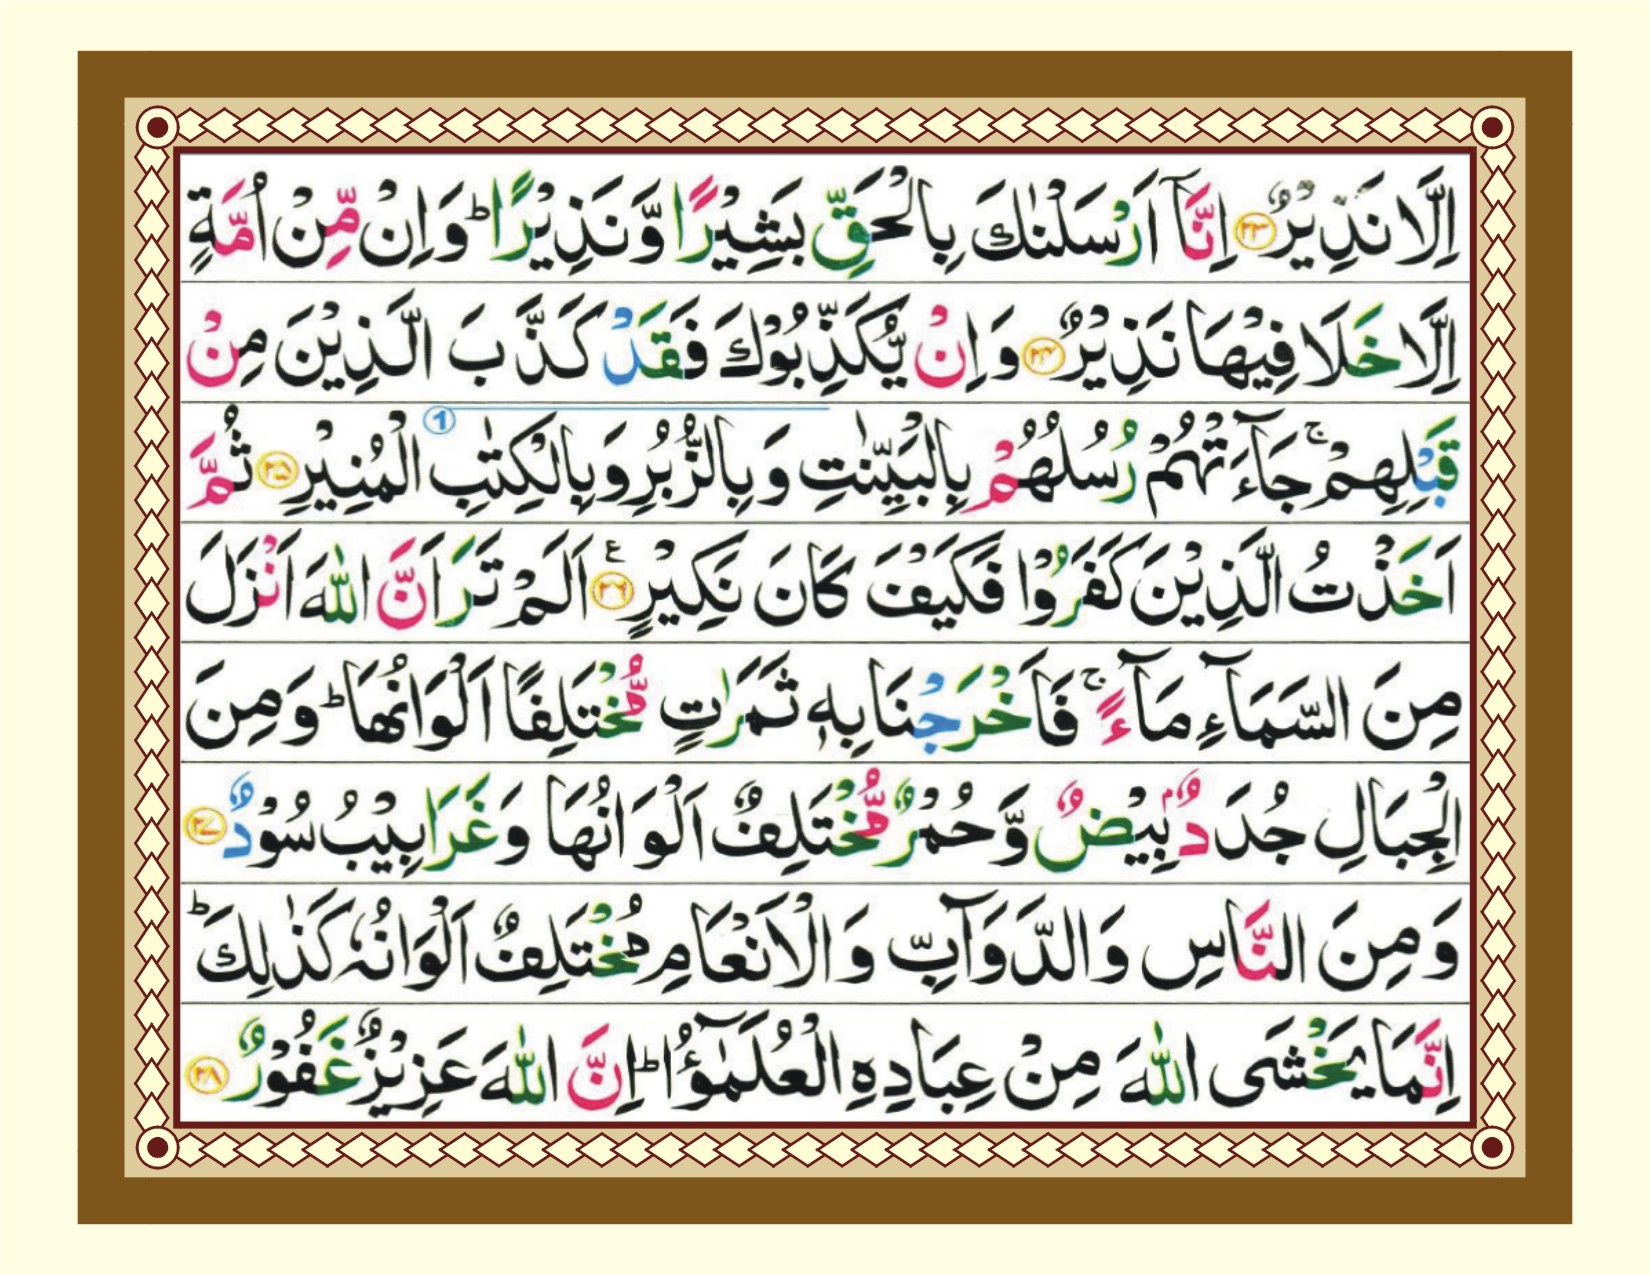 اِلَّا نَذِيْرٌ ۝۲۳ اِنَّاۤ اَرْسَلْنٰكَ بِالْحَقِّ بَشِيْرًا وَّنَذِيْرًا ؕ وَاِنْ مِّنْ اُمَّةٍ
اِلَّا خَلَا فِيْهَا نَذِيْرٌ ۝۲۴ وَاِنْ يُّكَذِّبُوْكَ فَقَدْ كَذَّبَ الَّذِيْنَ مِنْ
قَبْلِهِمْ ۚ جَآءَتْهُمْ رُسُلُهُمْ بِالْبَيِّنٰتِ وَبِالزُّبُرِ وَبِالْكِتٰبِ 1 الْمُنِيْرِ ۝۲۵ ثُمَّ
اَخَذْتُ الَّذِيْنَ كَفَرُوْا فَكَيْفَ كَانَ نَكِيْرِ ۝۲۶ ع اَلَمْ تَرَ اَنَّ اللّٰهَ اَنْزَلَ
مِنَ السَّمَآءِ مَآءً ۚ فَاَخْرَجْنَا بِهٖ ثَمَرٰتٍ مُّخْتَلِفًا اَلْوَانُهَا ؕ وَمِنَ
الْجِبَالِ جُدَدٌۢ بِيْضٌ وَّحُمْرٌ مُّخْتَلِفٌ اَلْوَانُهَا وَغَرَابِيْبُ سُوْدٌ ۝۲۷
وَمِنَ النَّاسِ وَالدَّوَآبِّ وَالْاَنْعَامِ مُخْتَلِفٌ اَلْوَانُهٗ كَذٰلِكَ ؕ
اِنَّمَا يَخْشَى اللّٰهَ مِنْ عِبَادِهِ الْعُلَمٰٓؤُا ؕ اِنَّ اللّٰهَ عَزِيْزٌ غَفُوْرٌ ۝۲۸